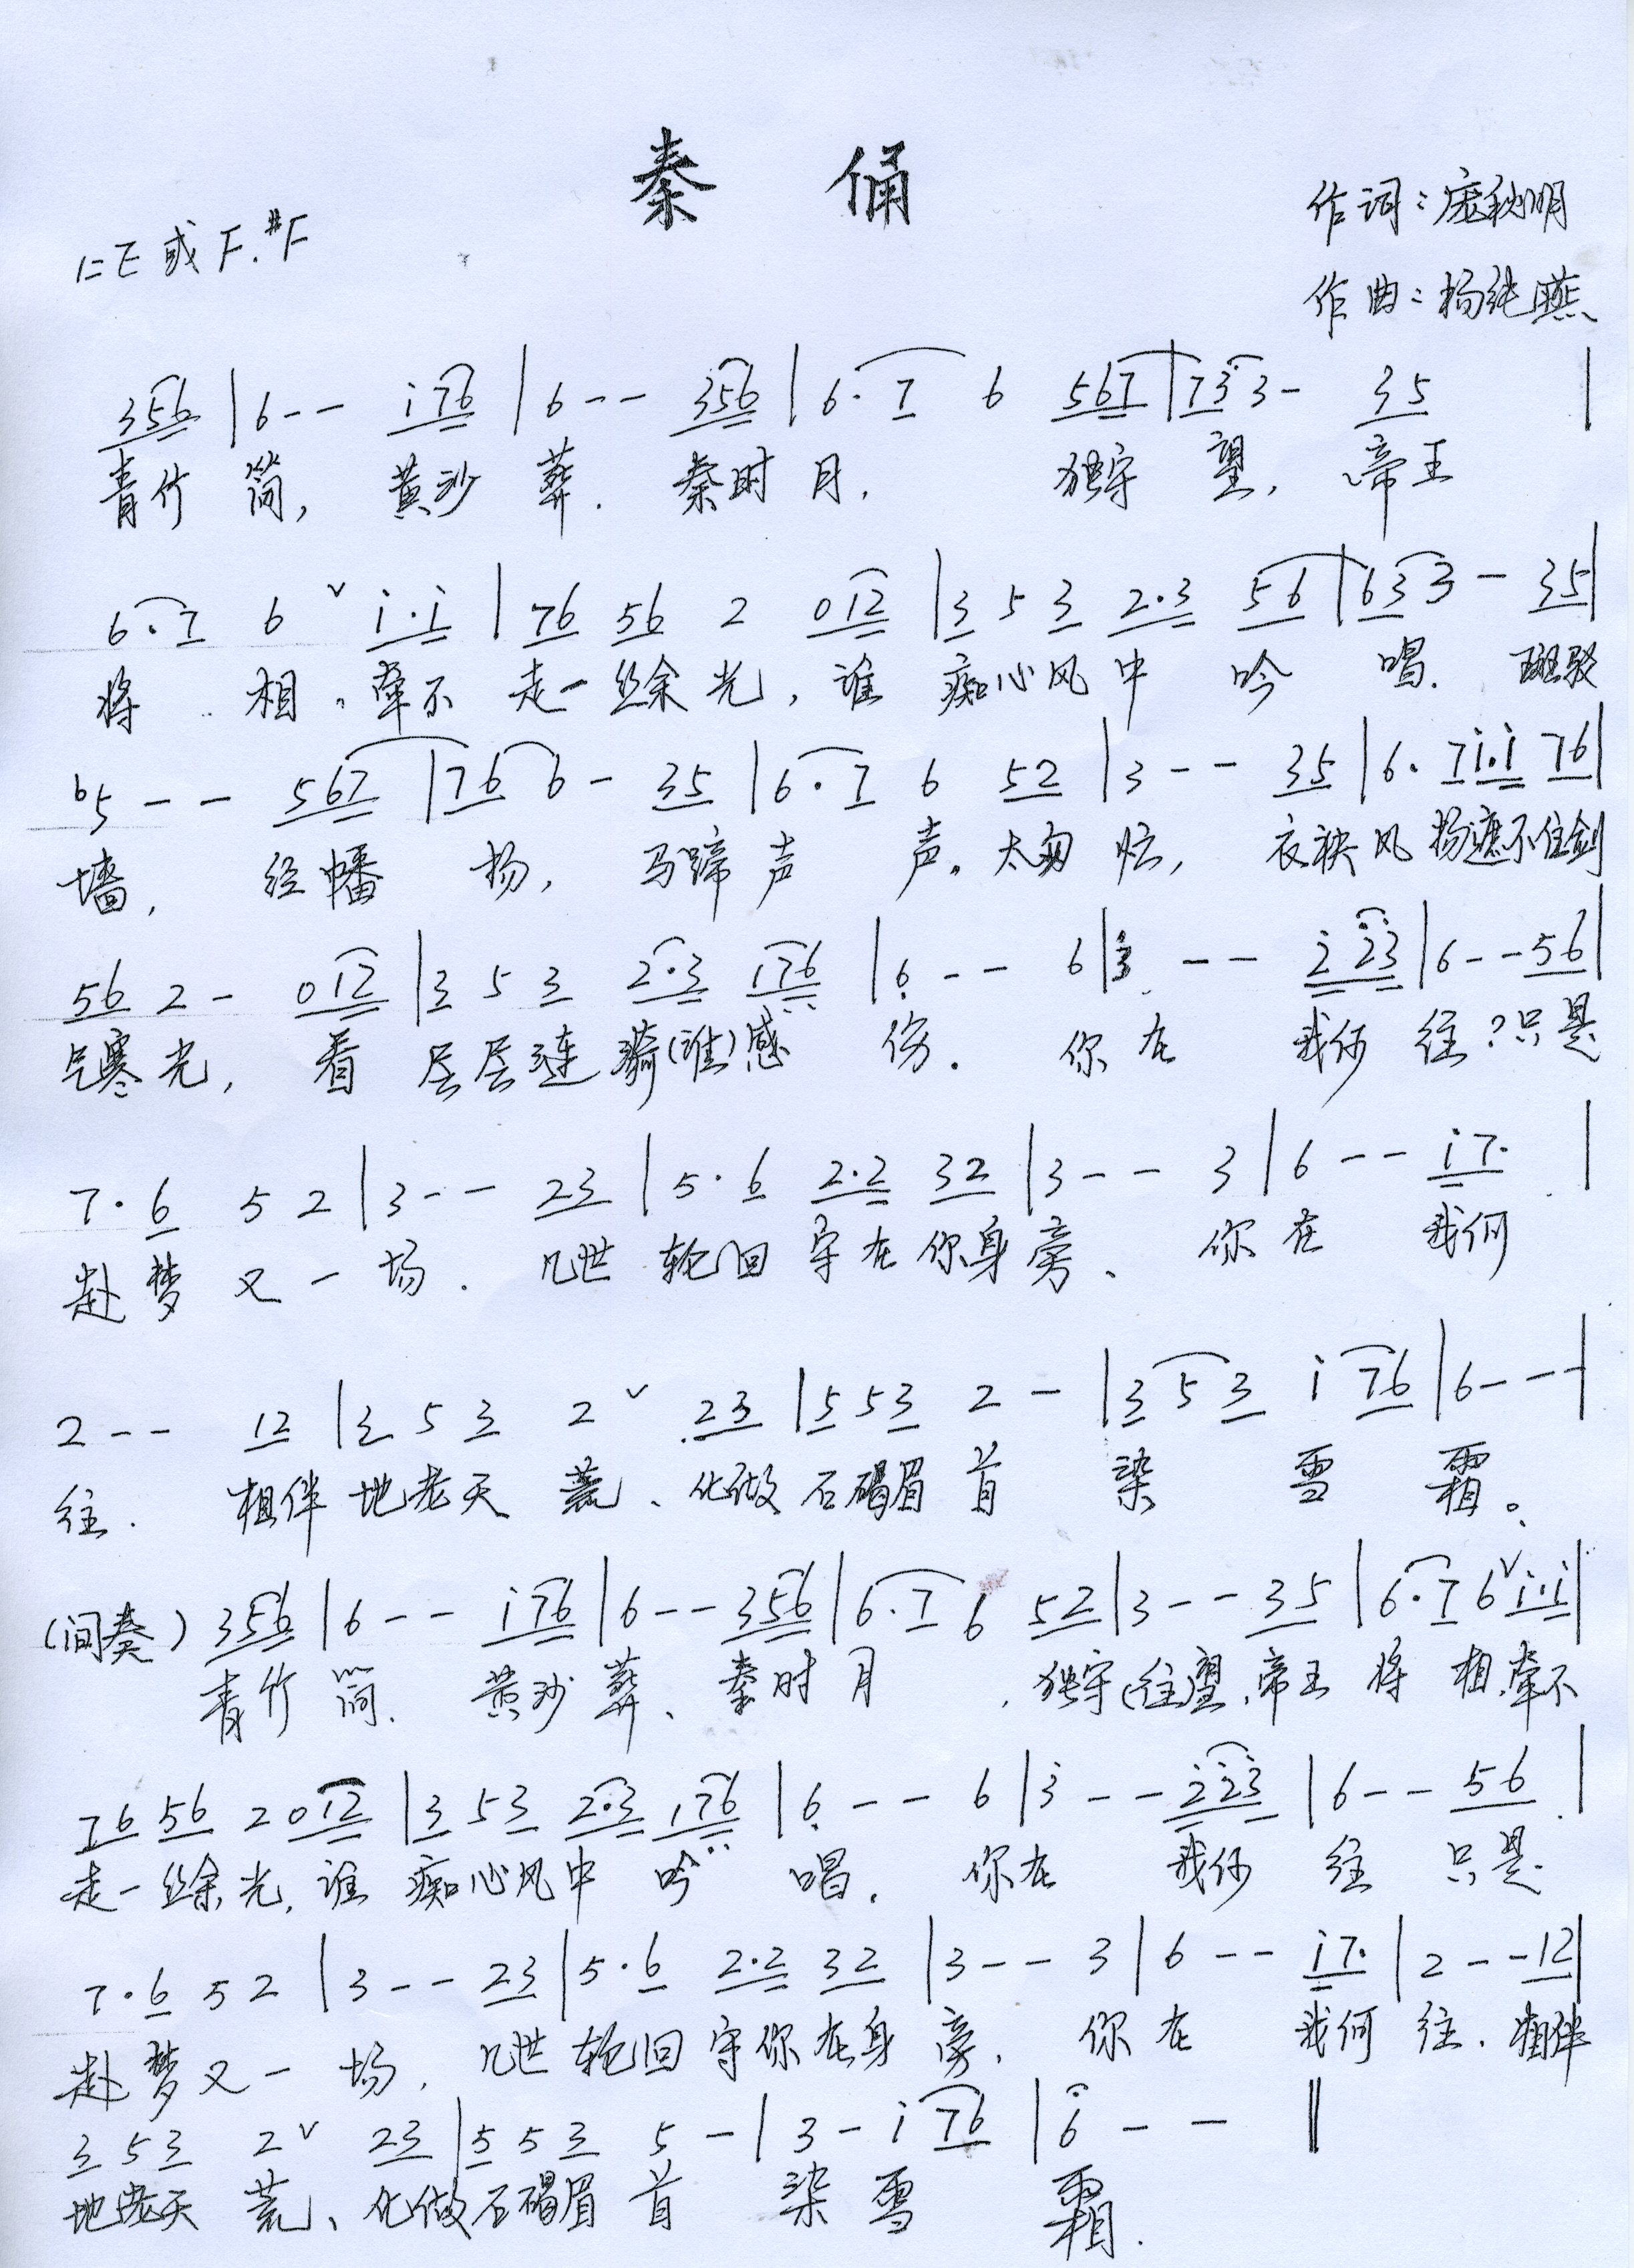 秦 俑
1=E或F.#F
作词:庞秋明
作曲:杨纯燕
356 | 6 - - i 76 | 6 - - 356 | 6 · 7 6 567 | 73 3 - 35 |
青竹 简, 黄沙 葬. 秦时 月. 独守 望, 帝王
6·7 6 ˅ i·i | 76 56 2 012 | 3 5 3 2·3 56 | 63 3 - 35 |
将 相, 牵不 走一丝余光, 谁 痴心风中 吟 唱. 斑驳
b5 - - 567 | 76 6 - 35 | 6·7 6 52 | 3 - - 35 | 6· 7i·i 76 |
墙, 经幡 扬, 马蹄声 声。太匆忙, 衣袂风扬遮不住剑
56 2 - 012 | 3 5 3 2·3 176 | 6 - - 6 | 3 - - 2 23 | 6 - - 56 |
气寒光, 看 层层连骑(谁)感 伤. 你在 我何 往?只是
7·6 5 2 | 3 - - 23 | 5·6 2·2 32 | 3 - - 3 | 6 - - i7· |
赴梦又一场. 几世轮回守在你身旁、 你在 我何
2 - - 12 | 3 5 3 2 ˅ 23 | 5 5 3 2 - | 3 5 3 i 76 | 6 - - - |
往. 相伴地老天 荒、化做石碣眉首 染 雪 霜。
(间奏) 356 | 6 - - i 76 | 6 - - 356 | 6·7 6 52 | 3 - - 35 | 6·7 6 ˅ i·i |
青竹 简. 黄沙 葬、秦时 月 . 独守(往)望.帝王 将 相.牵不
76 56 2 012 | 3 5 3 2·3 176 | 6 - - 6 | i - - 2 23 | 6 - - 56 |
走一丝余光.谁 痴心风中 吟 唱. 你在 我何 往 只是.
7·6 5 2 | 3 - - 23 | 5·6 2·2 32 | 3 - - 3 | 6 - - i7· | 2 - - 12 |
赴梦又一 场. 几世轮回守你在身旁. 你在 我何往. 相伴
3 5 3 2 ˅ 23 | 5 5 3 5 - | 3 - i 76 | 6 - - ‖
地老天 荒、化做石碣眉首 染雪 霜.